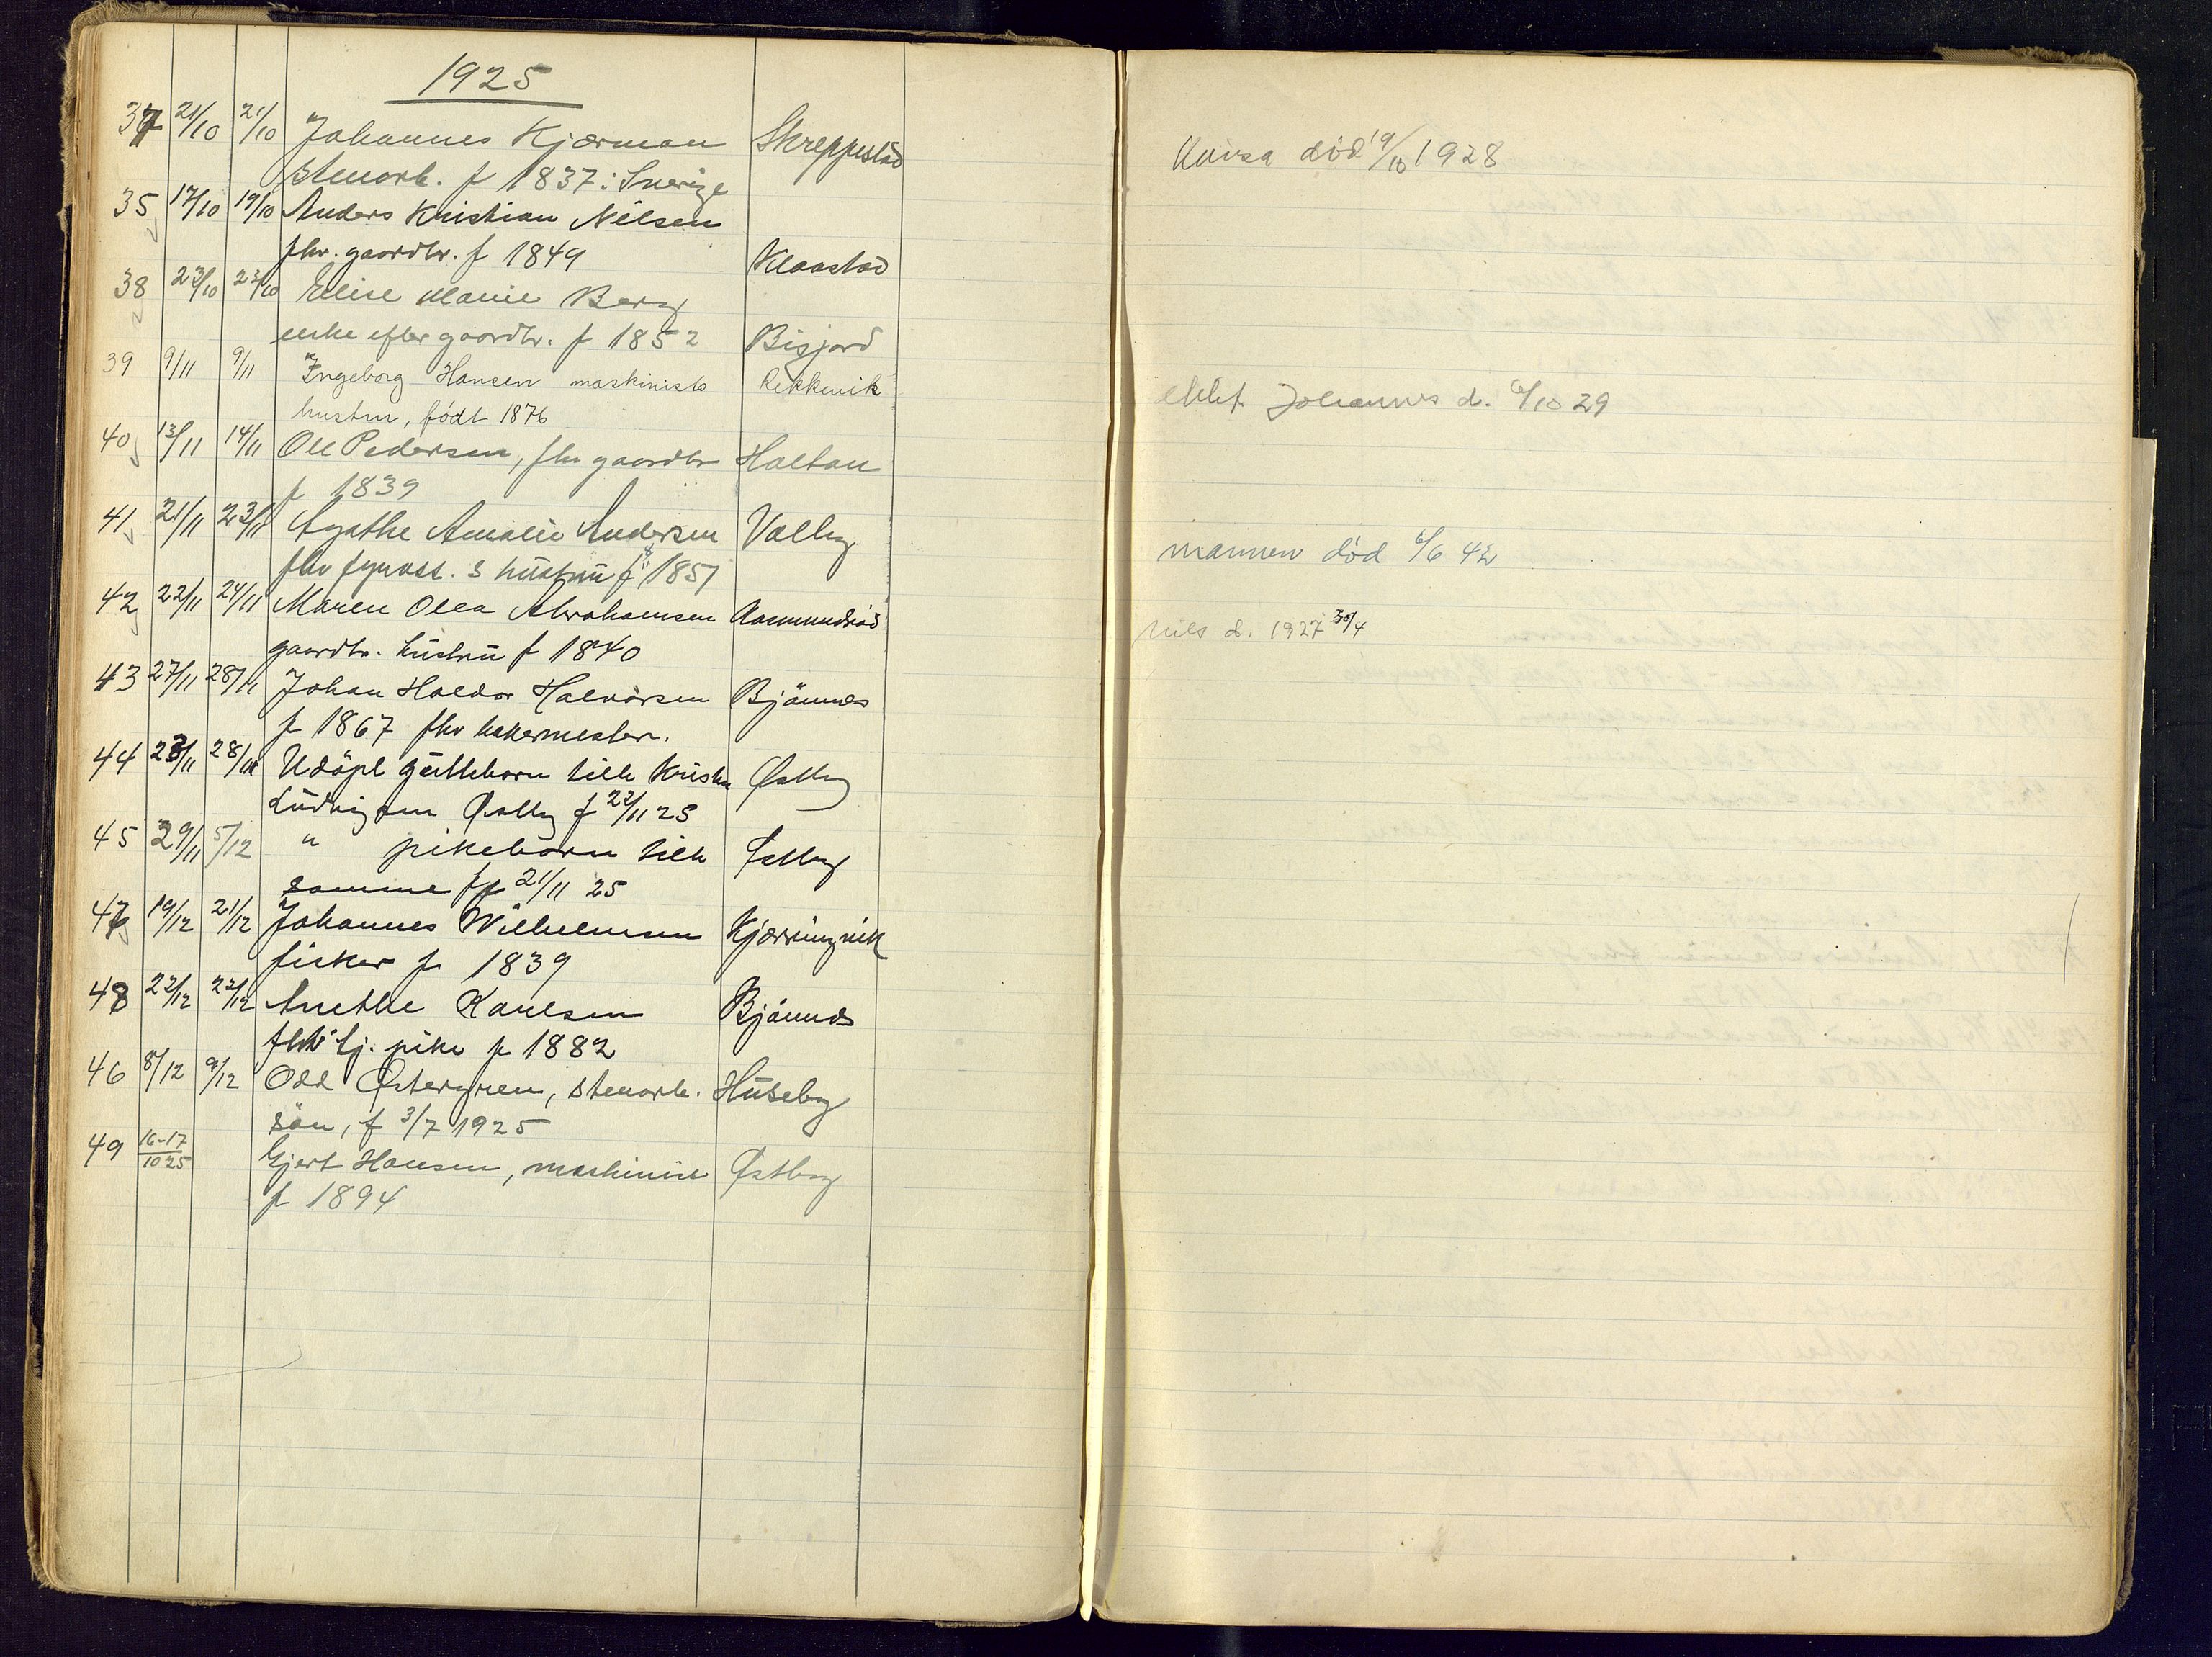 1925
37 21/10 21/10 Johannes Kjærman Skreppestad
stenarb. f 1837 i Sverige
35 17/10 19/10 Anders Kristian Nilsen
fhv. gaardbr. f 1849 Klaastad
38 23/10 23/10 Elise Marie Berg
enke efter gaardbr. f 1852 Bisjord
39 9/11 9/11 Ingeborg Hansen maskinists Rekkevik
hustru, født 1876
40 13/11 14/11 Ole Pedersen, fhv gaardbr Haltan
f 1839
41 21/11 23/11 Agathe Amalie Andersen Valby
fhv fyrvost. s hustru f 1851
42 22/11 24/11 Maren Olea Abrahamsen Aasmundrød
gaardbr. hustru f 1840
43 27/11 28/11 Johan Haldor Halvorsen Bjønnes
f 1867 fhv bakermester.
44 23/11 28/11 Udøpt gutteborn till Kristen Østby
Ludvigsen Østby f 22/11 25
45 29/11 5/12 " pikebarn till Østby
samme f 21/11 25
47 19/12 21/12 Johannes Wilhelmsen Kjærringvik
fisker f 1839
48 22/12 22/12 Anethe Karlsen Bjønnes
fhv tj. pike f 1882
46 8/12 9/12 Odd Østergren, stenarb. Huseby
søn, f 3/7 1925
49 16-17/10 25 Gjert Hansen, maskinist Østby
f 1894
død 19/10 1928
Johannes d. 6/10 29
mannen død 6/6 42
Nils d. 1927 30/4